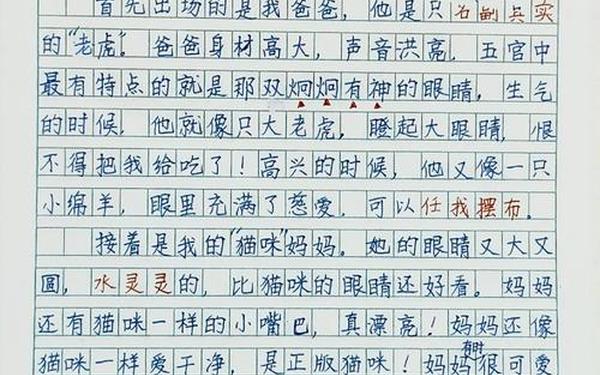 首先出场的是我爸爸，他是只名副其实
的“老虎”。爸爸身材高大，声音洪亮，五官中
最有特点的就是那双炯炯有神的眼睛，生气
的时候，他就像只大老虎，瞪起大眼睛，恨
不得把我给吃了！高兴的时候，他又像一只
小绵羊，眼里充满了慈爱，可以任我摆布。
接着是我的“猫咪”妈妈。她的眼睛又大又
圆，水灵灵的，比猫咪的眼睛还好看。妈妈
还有猫咪一样的小嘴巴，真漂亮！妈妈还像
猫咪一样爱干净，是正版猫咪！妈妈有时很可爱